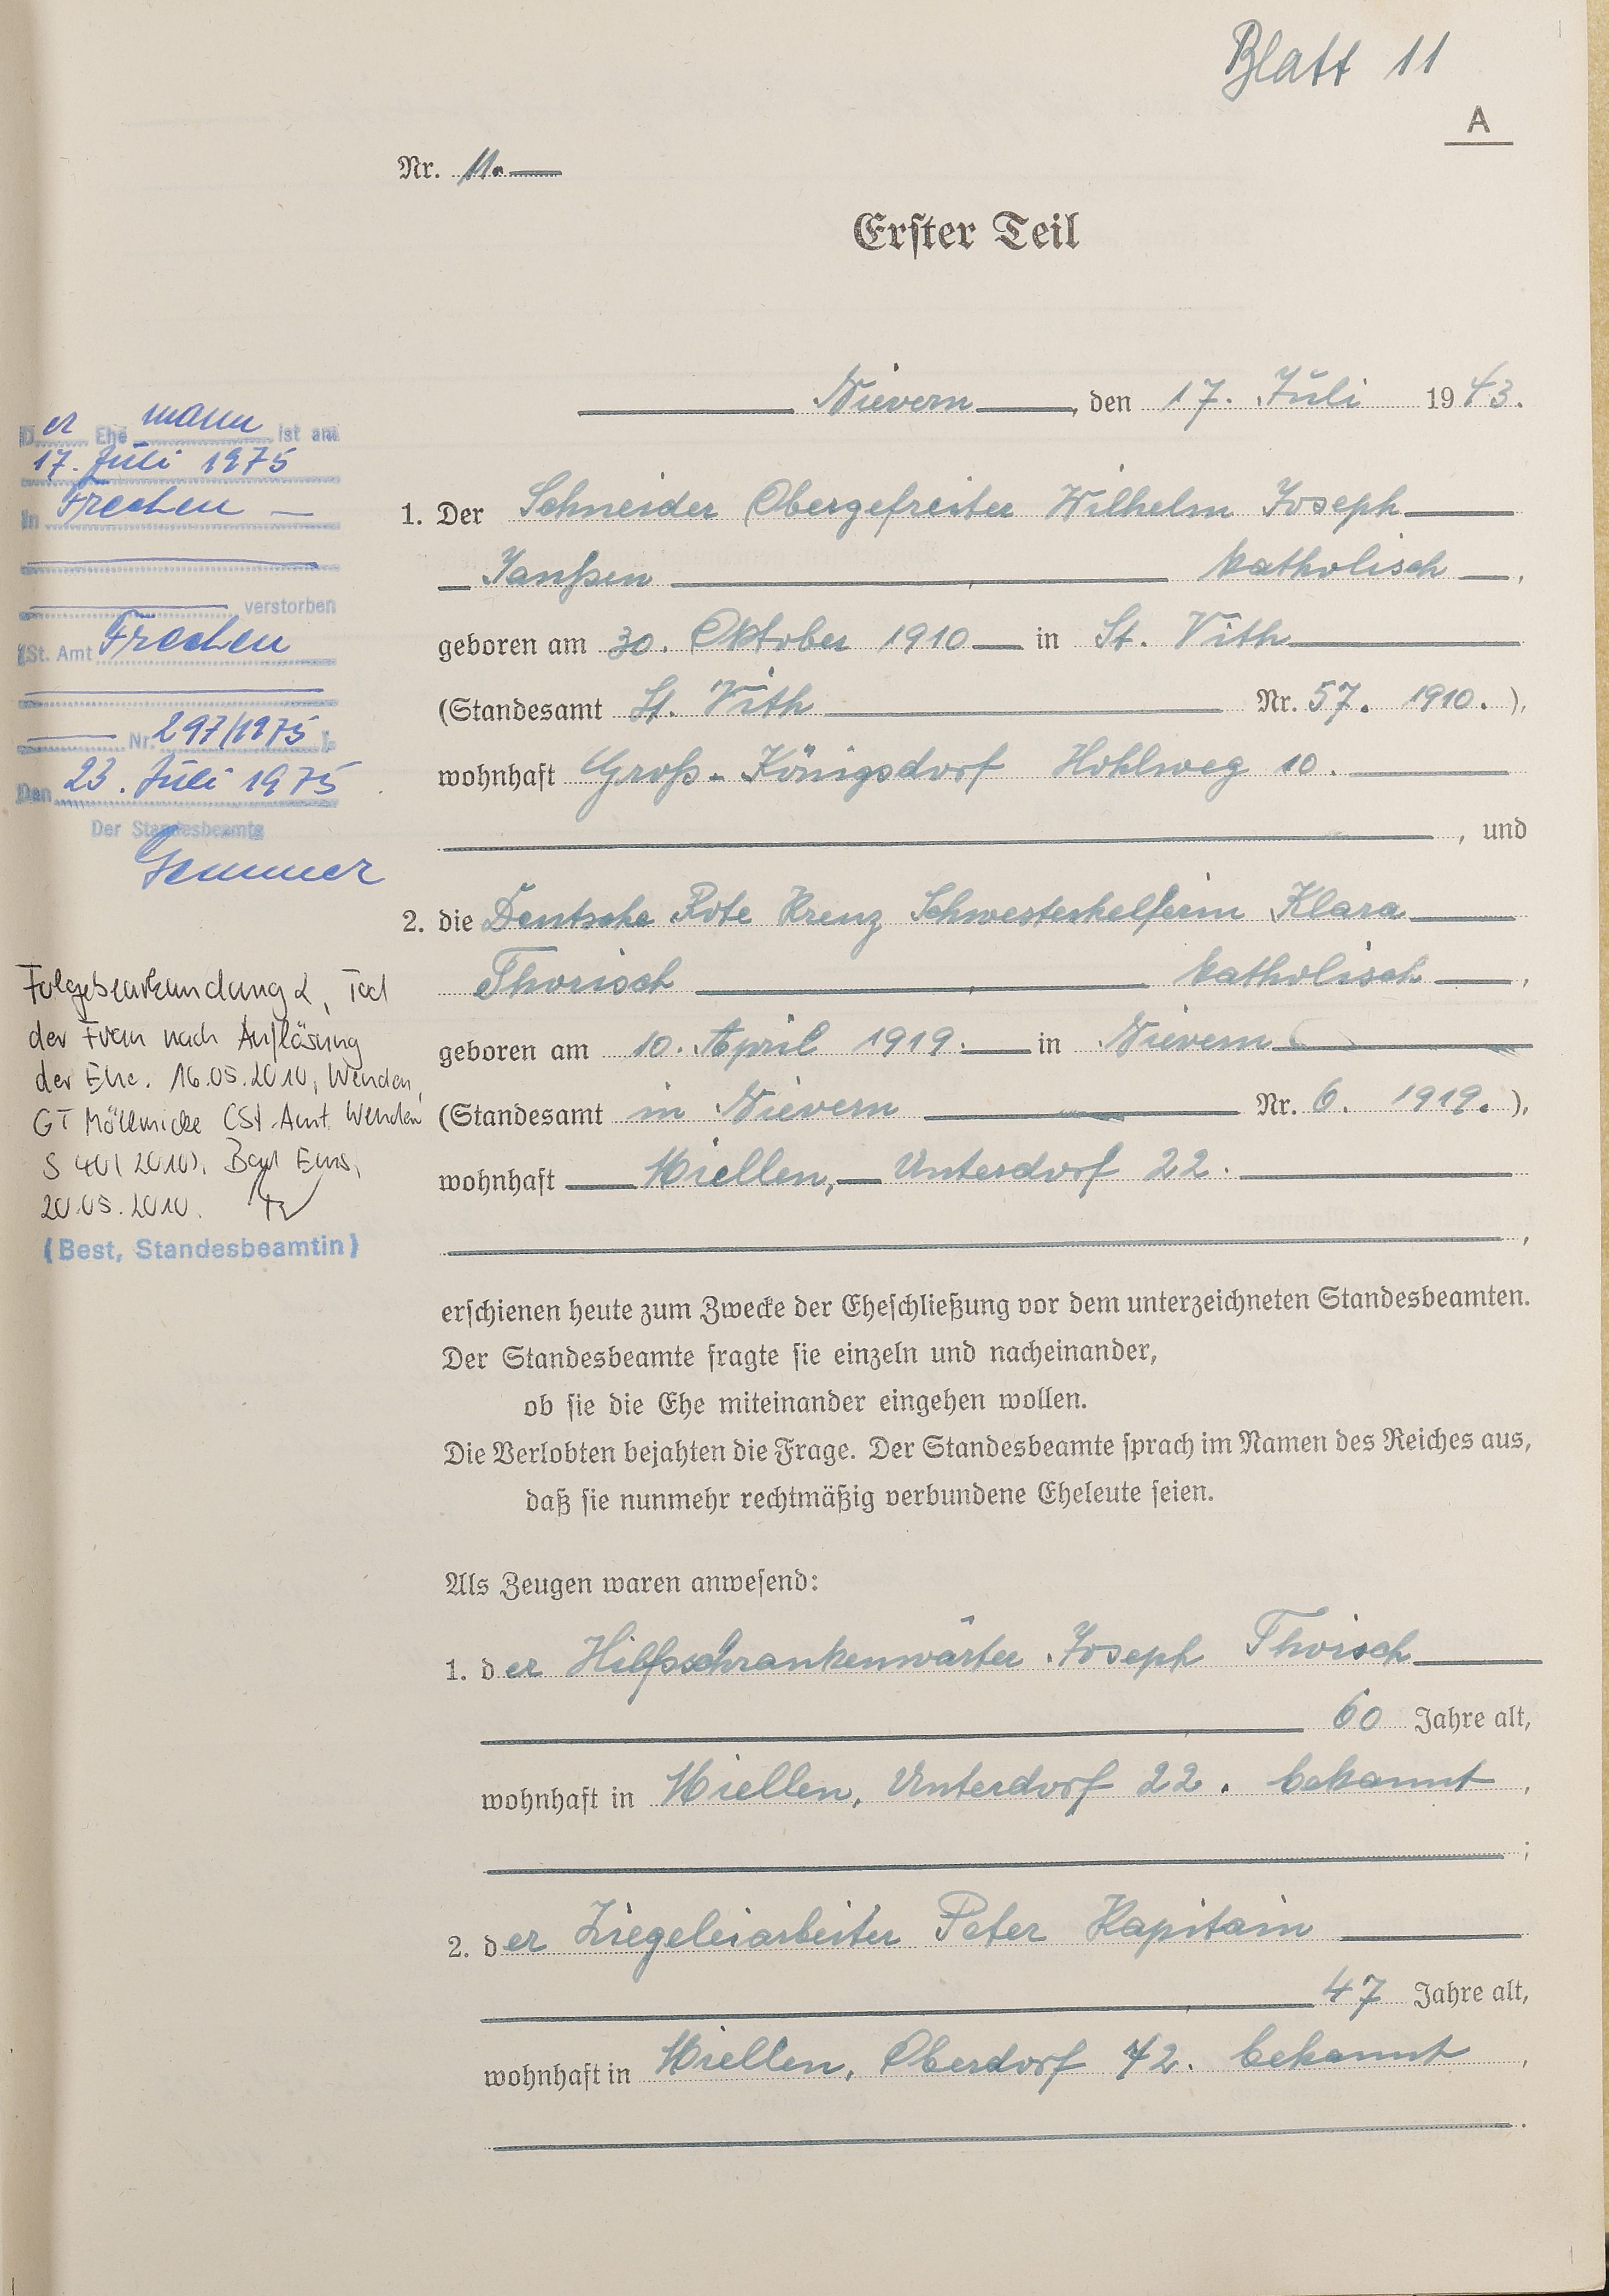 Blatt 11
A
Nr. 11.
Erster Teil
Nievern, den 17. Juli 1943.
1. Der Schneider Obergefreiter Wilhelm Joseph
Janßen katholisch,
geboren am 30. Oktober 1910 in St. Vith
(Standesamt St. Vith Nr. 57. 1910.),
wohnhaft Groß-Königsdorf Hohlweg 10.
, und
2. die Deutsche Rote Kreuz Schwesterhelferin Klara
Thorisch katholisch,
geboren am 10. April 1919. in Nievern
(Standesamt in Nievern Nr. 6. 1919.),
wohnhaft Miellen, Unterdorf 22.
,
erschienen heute zum Zwecke der Eheschließung vor dem unterzeichneten Standesbeamten.
Der Standesbeamte fragte sie einzeln und nacheinander,
ob sie die Ehe miteinander eingehen wollen.
Die Verlobten bejahten die Frage. Der Standesbeamte sprach im Namen des Reiches aus,
daß sie nunmehr rechtmäßig verbundene Eheleute seien.
Als Zeugen waren anwesend:
1. der Hilfsschrankenwärter Joseph Thorisch
60 Jahre alt,
wohnhaft in Miellen, Unterdorf 22. bekannt,
;
2. der Ziegeleiarbeiter Peter Kapitain
47 Jahre alt,
wohnhaft in Miellen, Oberdorf 42. bekannt,
.
Der Ehemann ist am
17. Juli 1975
in Frechen —
verstorben
(St. Amt Frechen
Nr. 297/1975).
Den 23. Juli 1975
Der Standesbeamte
Folgebeurkundung 2, Tod
der Frau nach Auflösung
der Ehe. 16.05.2010, Wenden,
GT Möllmicke (St.Amt Wenden
S 40/2010). Bad Ems,
20.05.2010.
(Best, Standesbeamtin)